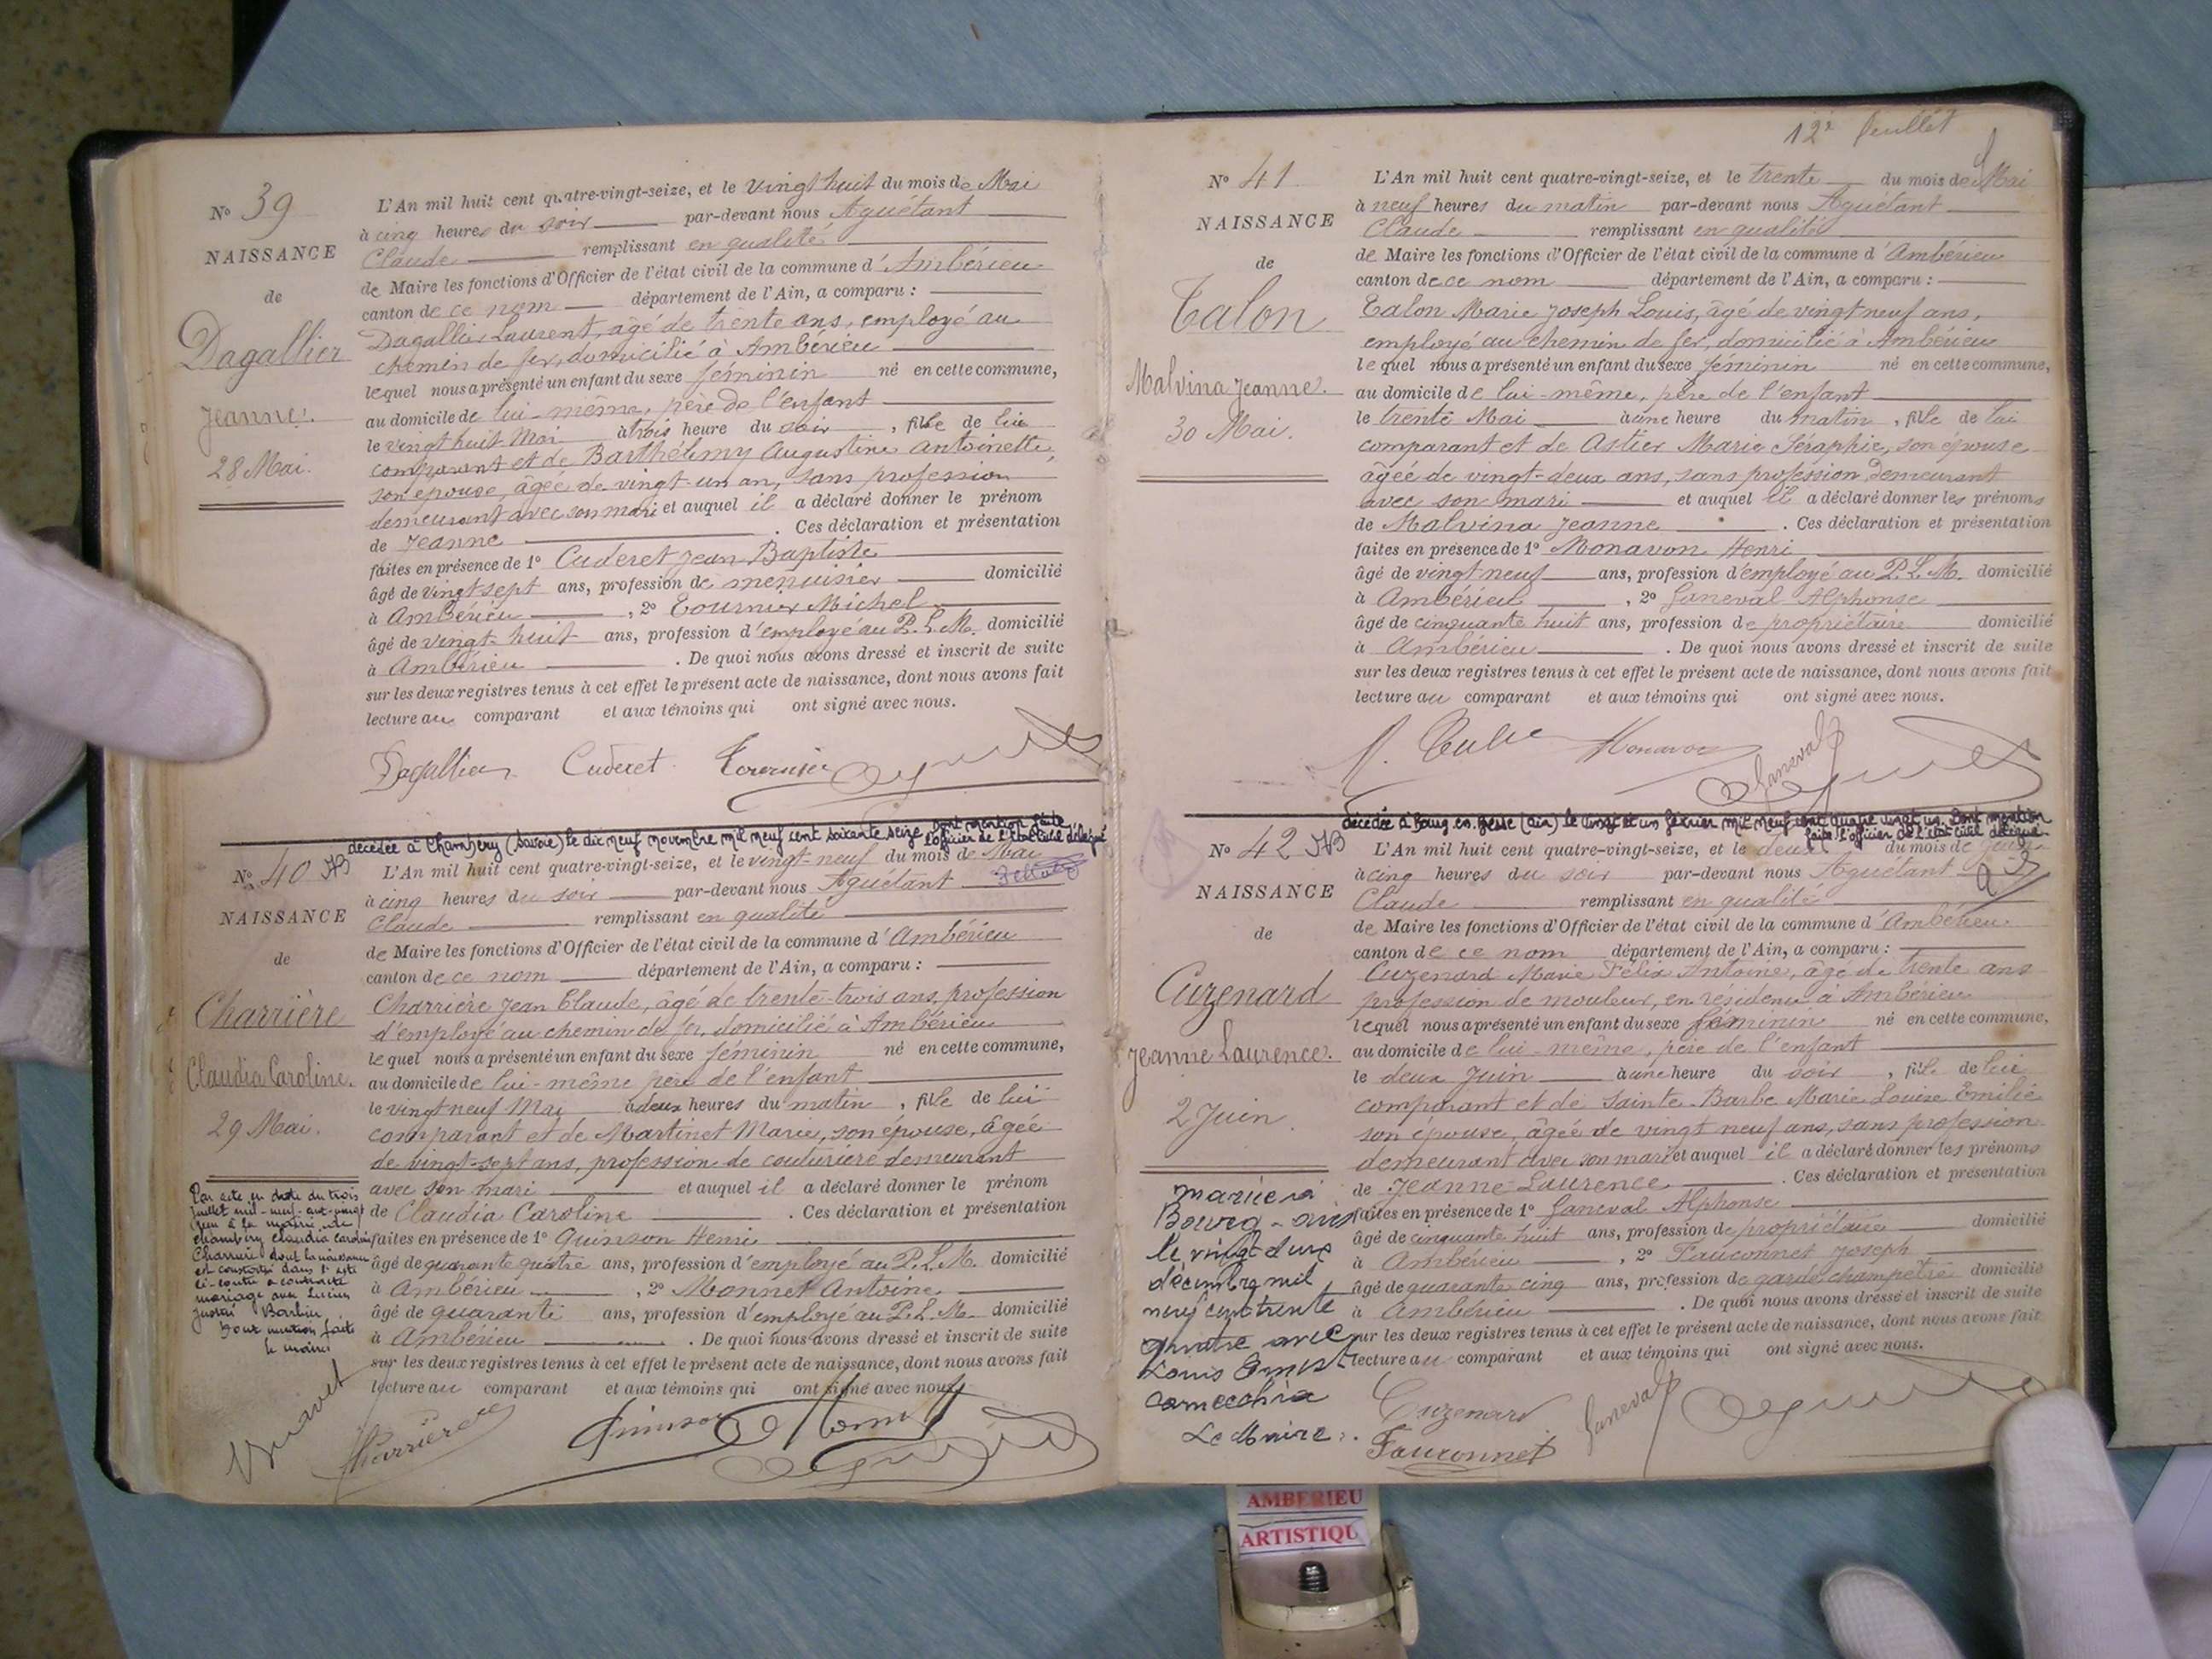 N° 39
NAISSANCE
de
Dagallier
Jeanne.
28 Mai.
L'An mil huit cent quatre-vingt-seize, et le vingt huit du mois de Mai
à cinq heures du soir par-devant nous Aguétant
Claude remplissant en qualité
de Maire les fonctions d'Officier de l'état civil de la commune d'Ambérieu
canton de ce nom département de l'Ain, a comparu :
Dagallier Laurent, âgé de trente ans, employé au
chemin de fer, domicilié à Ambérieu
lequel nous a présenté un enfant du sexe féminin né en cette commune,
au domicile de lui-même, père de l'enfant
le vingt huit Mai à trois heure du soir, fille de lui
comparant et de Barthélemy Augustine Antoinette,
son épouse, âgée de vingt-un an, sans profession
demeurant avec son mari et auquel il a déclaré donner le prénom
de Jeanne. Ces déclaration et présentation
faites en présence de 1° Cuderet Jean Baptiste
âgé de vingt sept ans, profession de menuisier domicilié
à Ambérieu, 2° Tournier Michel
âgé de vingt-huit ans, profession d'employé au P.L.M. domicilié
à Ambérieu. De quoi nous avons dressé et inscrit de suite
sur les deux registres tenus à cet effet le présent acte de naissance, dont nous avons fait
lecture au comparant et aux témoins qui ont signé avec nous.
Dagallier Cuderet Tournier
décédée à Chambéry (Savoie) le dix neuf novembre mil neuf cent soixante seize dont mention faite
l'officier de l'état civil délégué
N° 40
NAISSANCE
de
Charrière
Claudia Caroline.
29 Mai.
L'An mil huit cent quatre-vingt-seize, et le vingt-neuf du mois de Mai
à cinq heures du soir par-devant nous Aguétant
Claude remplissant en qualité
de Maire les fonctions d'Officier de l'état civil de la commune d'Ambérieu
canton de ce nom département de l'Ain, a comparu :
Charrière Jean Claude, âgé de trente-trois ans, profession
d'employé au chemin de fer, domicilié à Ambérieu
lequel nous a présenté un enfant du sexe féminin né en cette commune,
au domicile de lui-même père de l'enfant
le vingt neuf Mai à deux heures du matin, fille de lui
comparant et de Martinet Marie, son épouse, âgée
de vingt-sept ans, profession de couturière demeurant
avec son mari et auquel il a déclaré donner le prénom
de Claudia Caroline. Ces déclaration et présentation
faites en présence de 1° Quinson Henri
âgé de quarante quatre ans, profession d'employé au P.L.M. domicilié
à Ambérieu, 2° Monnet Antoine
âgé de quarante ans, profession d'employé au P.L.M. domicilié
à Ambérieu. De quoi nous avons dressé et inscrit de suite
sur les deux registres tenus à cet effet le présent acte de naissance, dont nous avons fait
lecture au comparant et aux témoins qui ont signé avec nous
Par acte en date du trois
juillet mil-neuf-cent-vingt
à la mairie de
Chambéry Claudia Caroline
Charrière dont la naissance
est constatée dans l'acte
ci-contre a contracté
mariage avec Lucien
Barbin
Dont mention faite
le maire
Charrière Quinson
12e feuillet
N° 41
NAISSANCE
de
Talon
Malvina Jeanne.
30 Mai.
L'An mil huit cent quatre-vingt-seize, et le trente du mois de Mai
à neuf heures du matin par-devant nous Aguétant
Claude remplissant en qualité
de Maire les fonctions d'Officier de l'état civil de la commune d'Ambérieu
canton de ce nom département de l'Ain, a comparu :
Talon Marie Joseph Louis, âgé de vingt neuf ans,
employé au chemin de fer, domicilié à Ambérieu
lequel nous a présenté un enfant du sexe féminin né en cette commune,
au domicile de lui-même, père de l'enfant
le trente Mai à une heure du matin, fille de lui
comparant et de Astier Marie Séraphie, son épouse
âgée de vingt-deux ans, sans profession demeurant
avec son mari et auquel il a déclaré donner les prénoms
de Malvina Jeanne. Ces déclaration et présentation
faites en présence de 1° Monavon Henri
âgé de vingt neuf ans, profession d'employé au P.L.M. domicilié
à Ambérieu, 2° Janeval Alphonse
âgé de cinquante huit ans, profession de propriétaire domicilié
à Ambérieu. De quoi nous avons dressé et inscrit de suite
sur les deux registres tenus à cet effet le présent acte de naissance, dont nous avons fait
lecture au comparant et aux témoins qui ont signé avec nous.
Monavon Janeval
décédée à Bourg en Bresse (Ain) le vingt et un février mil neuf cent quatre vingt un. Dont mention
faite l'officier de l'état civil délégué
N° 42
NAISSANCE
de
Cuzenard
Jeanne Laurence.
2 Juin.
L'An mil huit cent quatre-vingt-seize, et le deux du mois de Juin
à cinq heures du soir par-devant nous Aguétant
Claude remplissant en qualité
de Maire les fonctions d'Officier de l'état civil de la commune d'Ambérieu
canton de ce nom département de l'Ain, a comparu :
Cuzenard Marie Félix Antoine, âgé de trente ans
profession de mouleur, en résidence à Ambérieu
lequel nous a présenté un enfant du sexe féminin né en cette commune,
au domicile de lui-même, père de l'enfant
le deux Juin à une heure du soir, fille de lui
comparant et de Sainte-Barbe Marie Louise Emilie
son épouse, âgée de vingt neuf ans, sans profession
demeurant avec son mari et auquel il a déclaré donner les prénoms
de Jeanne Laurence. Ces déclaration et présentation
faites en présence de 1° Janeval Alphonse
âgé de cinquante huit ans, profession de propriétaire domicilié
à Ambérieu, 2° Fauconnet Joseph
âgé de quarante cinq ans, profession de garde champêtre domicilié
à Ambérieu. De quoi nous avons dressé et inscrit de suite
sur les deux registres tenus à cet effet le présent acte de naissance, dont nous avons fait
lecture au comparant et aux témoins qui ont signé avec nous.
mariée à
Bourg-
le vingt deux
décembre mil
neuf cent trente
quatre avec
Louis Ernest
Le Maire :
Cuzenard Janeval
Fauconnet
AMBERIEU
ARTISTIQU